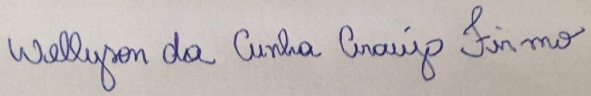 Wellyson da Cunha Araújo Firmo